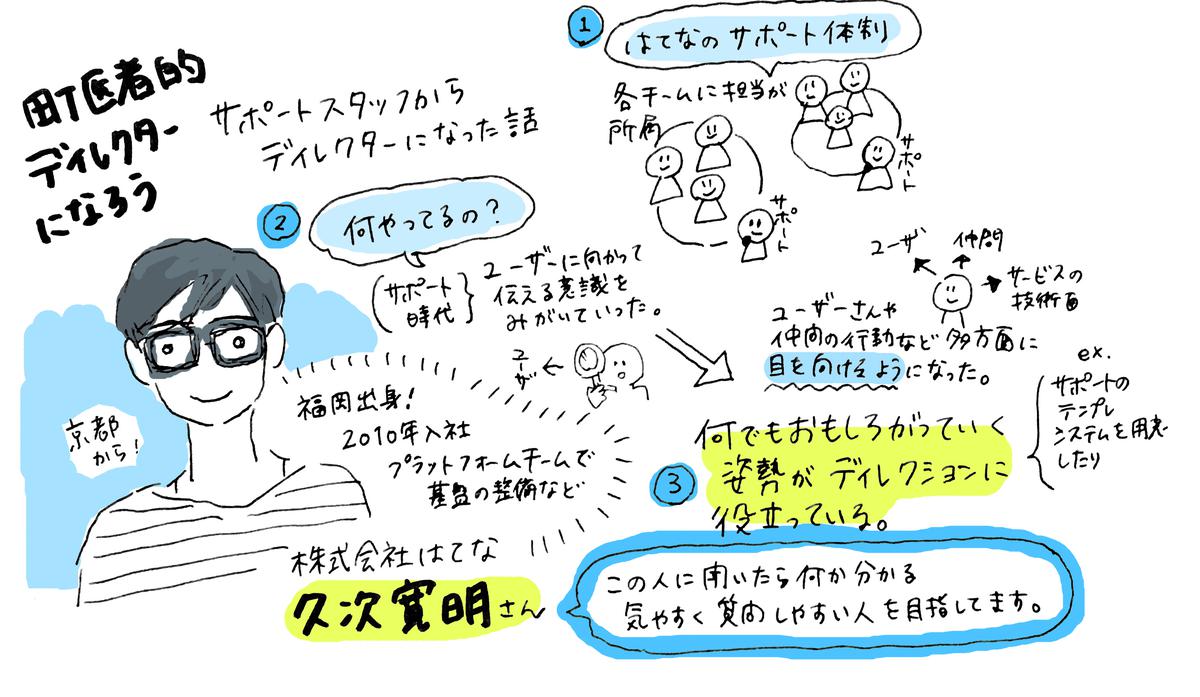 町医者的
ディレクター
になろう
サポートスタッフから
ディレクターになった話
1
はてなのサポート体制
各チームに担当が
所属
サポート
サポート
2
何やってるの?
(サポート
時代
ユーザーに向かって
伝える意識を
みがいていった。
ユーザ
ユーザ
仲間
サービスの
技術面
ユーザーさんや
仲間の行動など多方面に
目を向けるようになった。
ex.
サポートの
テンプレ
システムを開発
したり
福岡出身!
2010年入社
プラットフォームチームで
基盤の整備など
京都
から!
3
何でもおもしろがっていく
姿勢がディレクションに
役立っている。
株式会社はてな
久次寛明さん
この人に聞いたら何か分かる
気やすく質問しやすい人を目指してます。